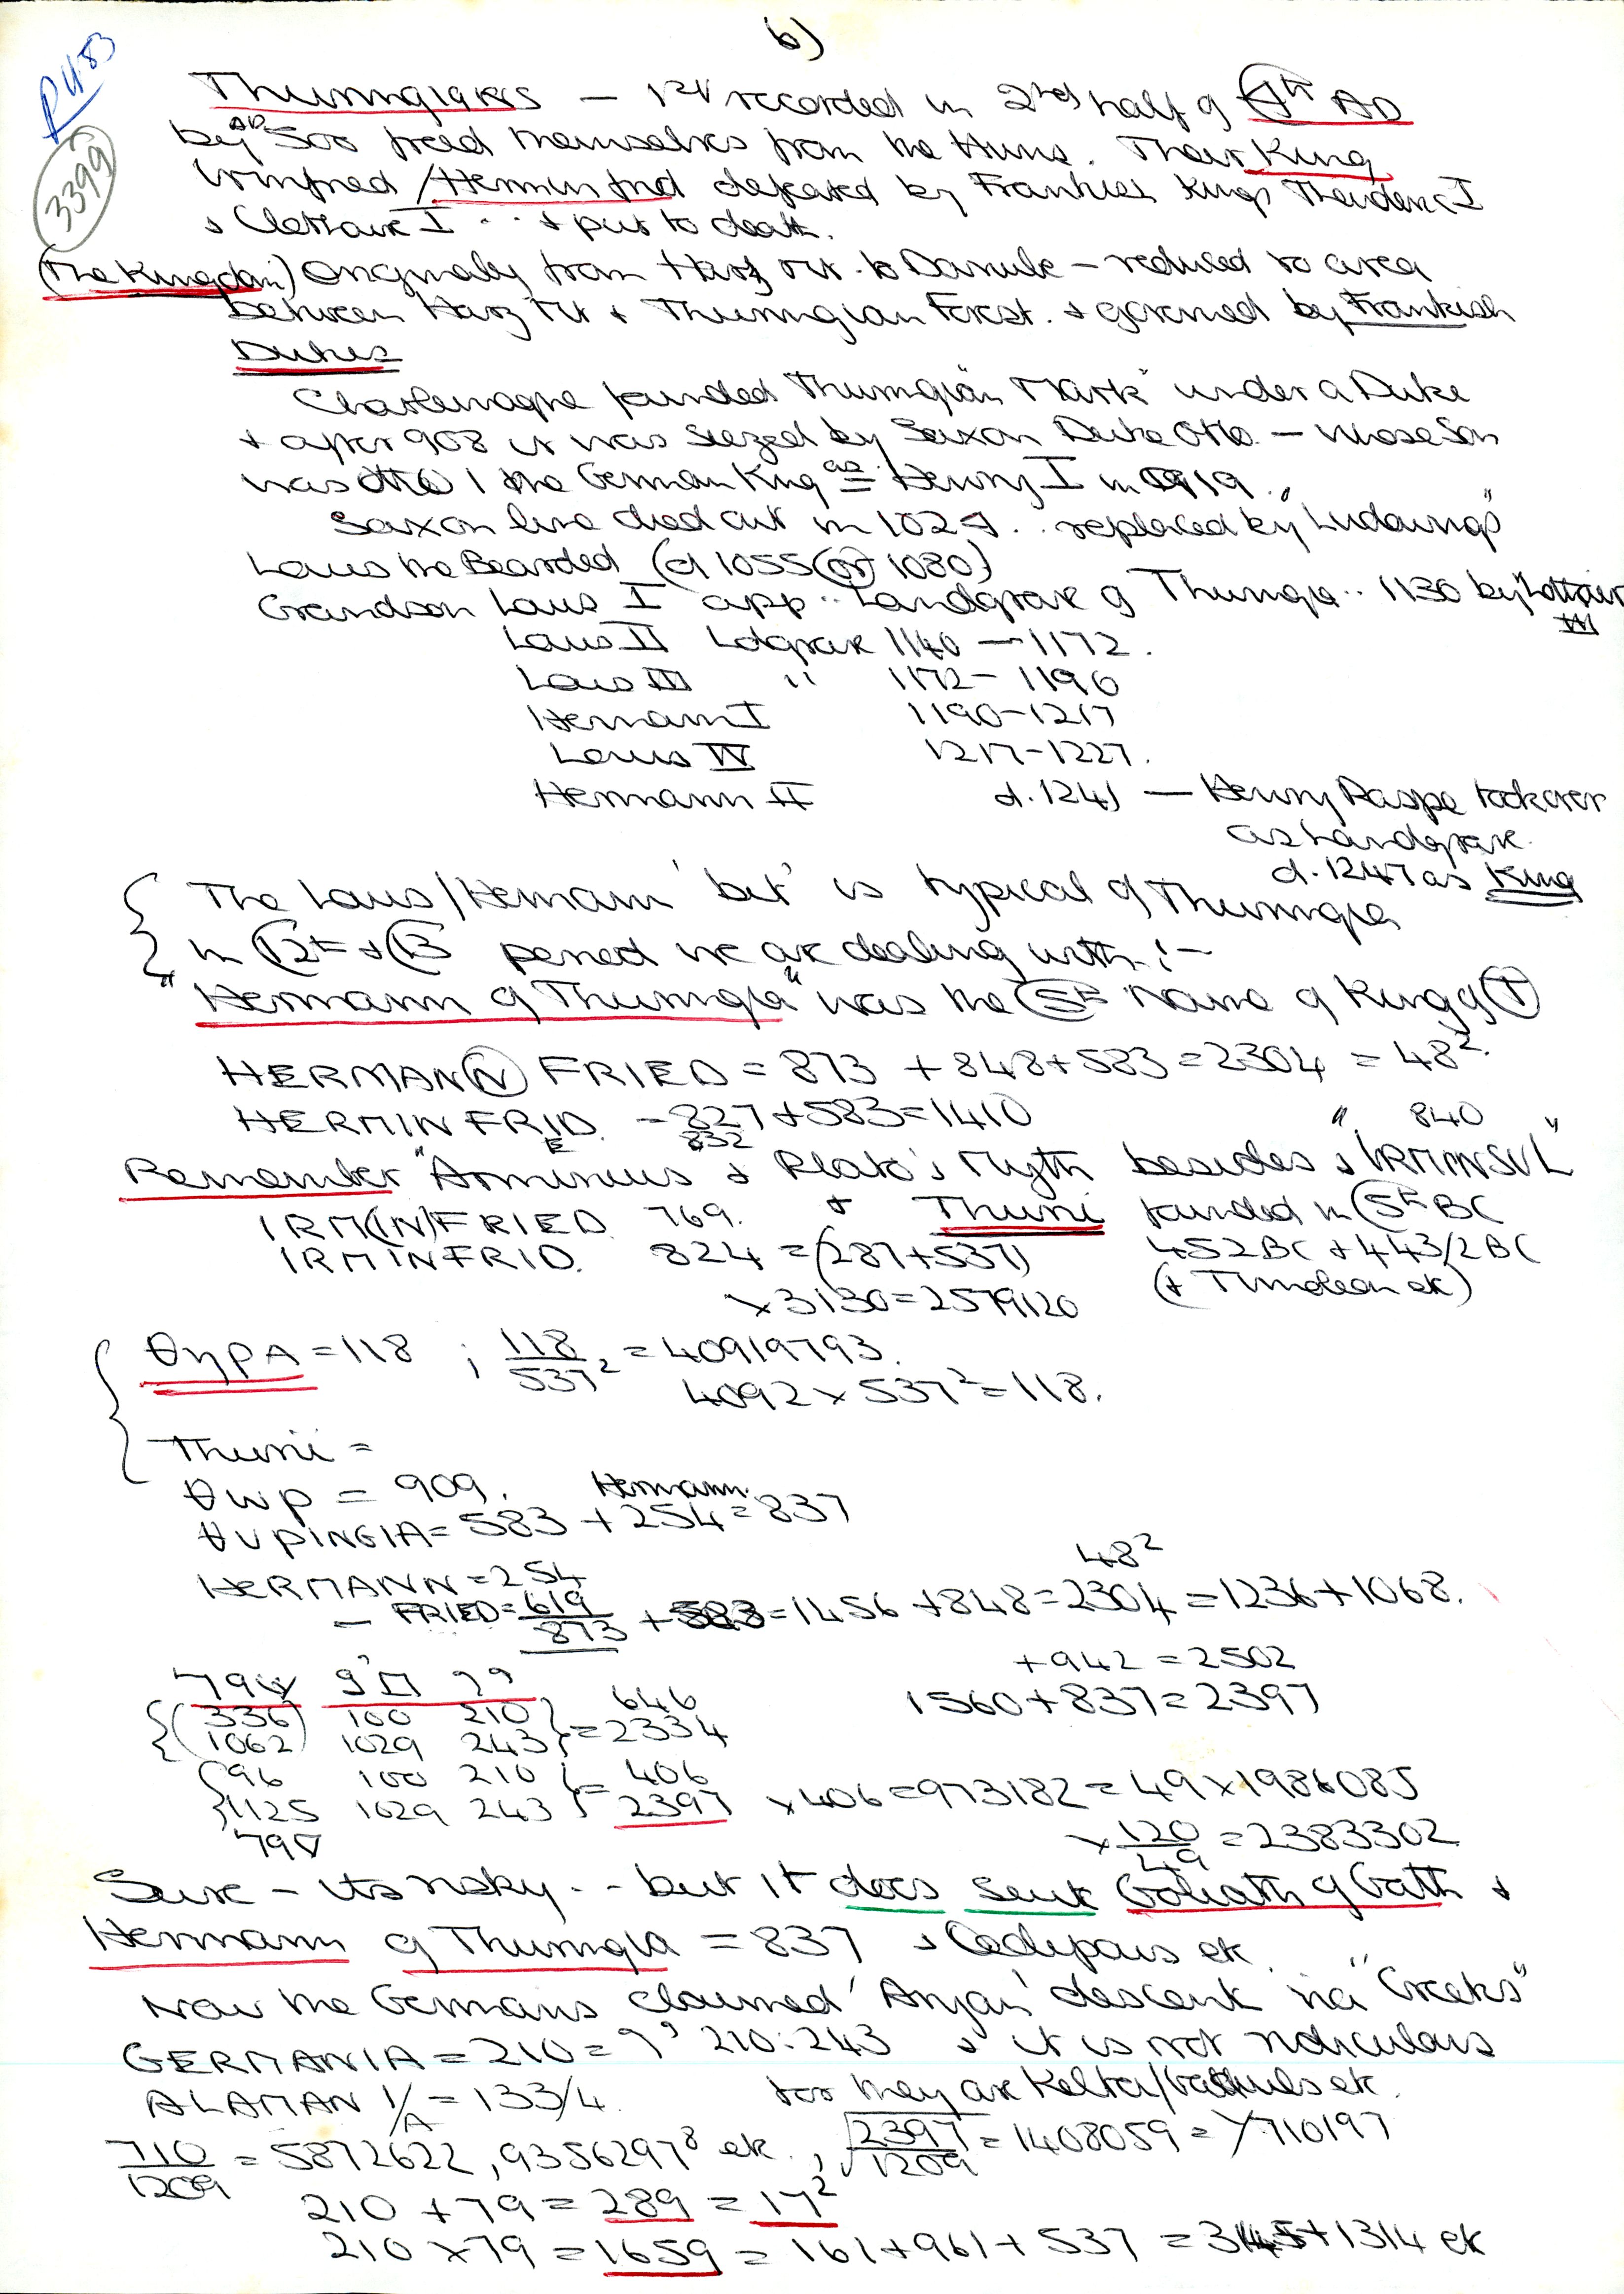 6)
R4.83
3399
Thuringians — 1st recorded in 2nd half of 4th AD
by AD 500 freed themselves from the Huns. Their King
Irminfried / Herminfrid defeated by Frankish Kings Theuderic I
& Clothair I .. & put to death.
(The Kingdom) Originally from Harz Mt. to Danube — reduced to area
between Harz Mt & Thuringian Forest. & governed by Frankish
Dukes
Charlemagne founded Thuringian "Mark" under a Duke
& after 908 it was siezed by Saxon Duke Otto. — whose son
was the German King as = Henry I in 919.
Saxon line died out in 1024 .. replaced by "Ludowings"
Louis the Bearded (d 1055 (or) 1080)
Grandson Louis I app .. Landgrave of Thuringia .. 1130 by Lothair
Louis II Ldgrave 1140 — 1172.
Louis III " 1172 - 1190
Hermann I 1190-1217
Louis IV 1217-1227.
Hermann II d. 1241 — Henry Raspe took over
as Landgrave.
d. 1247 as King
The Louis / Hermann 'bit' is typical of Thuringia
in 12th & 13 period we are dealing with :-
"Hermann of Thuringia" was the 5th Name of King of T
HERMAN(N) FRIED = 873 + 848 + 583 = 2304 = 48².
HERMINFRID. = 827 + 583 = 1410
E 832
" 840 "
Remember "Arminius & Plato's Myth besides & "IRMINSUL"
IRM(IN)FRIED 769. & Thurii founded in 5th BC
IRMINFRID. 824 = (287 + 537) 452 BC & 443/2 BC
x 3130 = 2579120 (+ Timoleon etc)
θηρA = 118 ; 118/537² = 40919793.
4092 x 537² = 118.
Thurii =
θωρ = 909. Hermann.
θυρINGIA = 583 + 254 = 837
HERMANN = 254
— FRIED = 619
873 + 583 = 1456 + 848 = 2304 = 1236 + 1068.
48²
+ 942 = 2502
1560 + 837 = 2397
(336) 100 210 646
1062 1029 243 = 2334
96 100 210 = 406
1125 1029 243 2397 x 406 = 973182 = 49 x 1986085
x 120/49 = 2383302
Sure — its risky .. but it does seuk Goliath of Gath &
Hermann of Thuringia = 837 & Oedipous etc.
Now the Germans claimed 'Aryan' descent via "Greeks"
GERMANIA = 210 = 210:243 & it is not ridiculous
ALAMAN I/A = 133/4. for they are Keltoi/ etc.
710/1209 = 5872622, 9356297⁸ etc., √2397/1209 = 1408059 = 1/710197
210 + 79 = 289 = 17²
210 x 79 = 1659 = 161 + 961 + 537 = 345 + 1314 etc